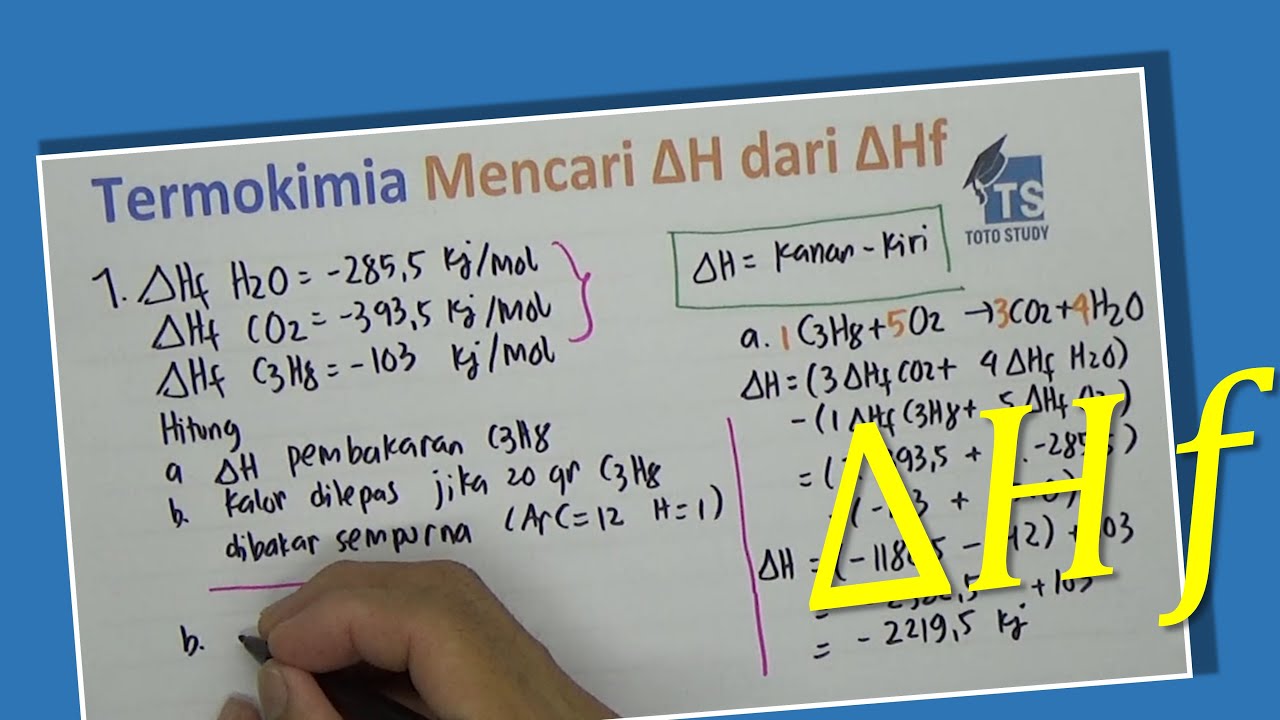 Termokimia Mencari ΔH dari ΔHf
TS
TOTO STUDY
1. ΔHf H2O = -285,5 kj/mol
ΔHf CO2 = -393,5 kj/mol
ΔHf C3H8 = -103 kj/mol
Hitung
a ΔH pembakaran C3H8
b. kalor dilepas jika 20 gr C3H8
dibakar sempurna (ArC=12 H=1)
b.
ΔH = kanan - kiri
a. 1 C3H8 + 5O2 → 3CO2 + 4H2O
ΔH = (3 ΔHf CO2 + 4 ΔHf H2O)
- (1 ΔHf C3H8 + 5 ΔHf
= ( 93,5 +
- (
ΔH = (-118 - 42) + 103
= + 103
= - 2219,5 kj
ΔHf